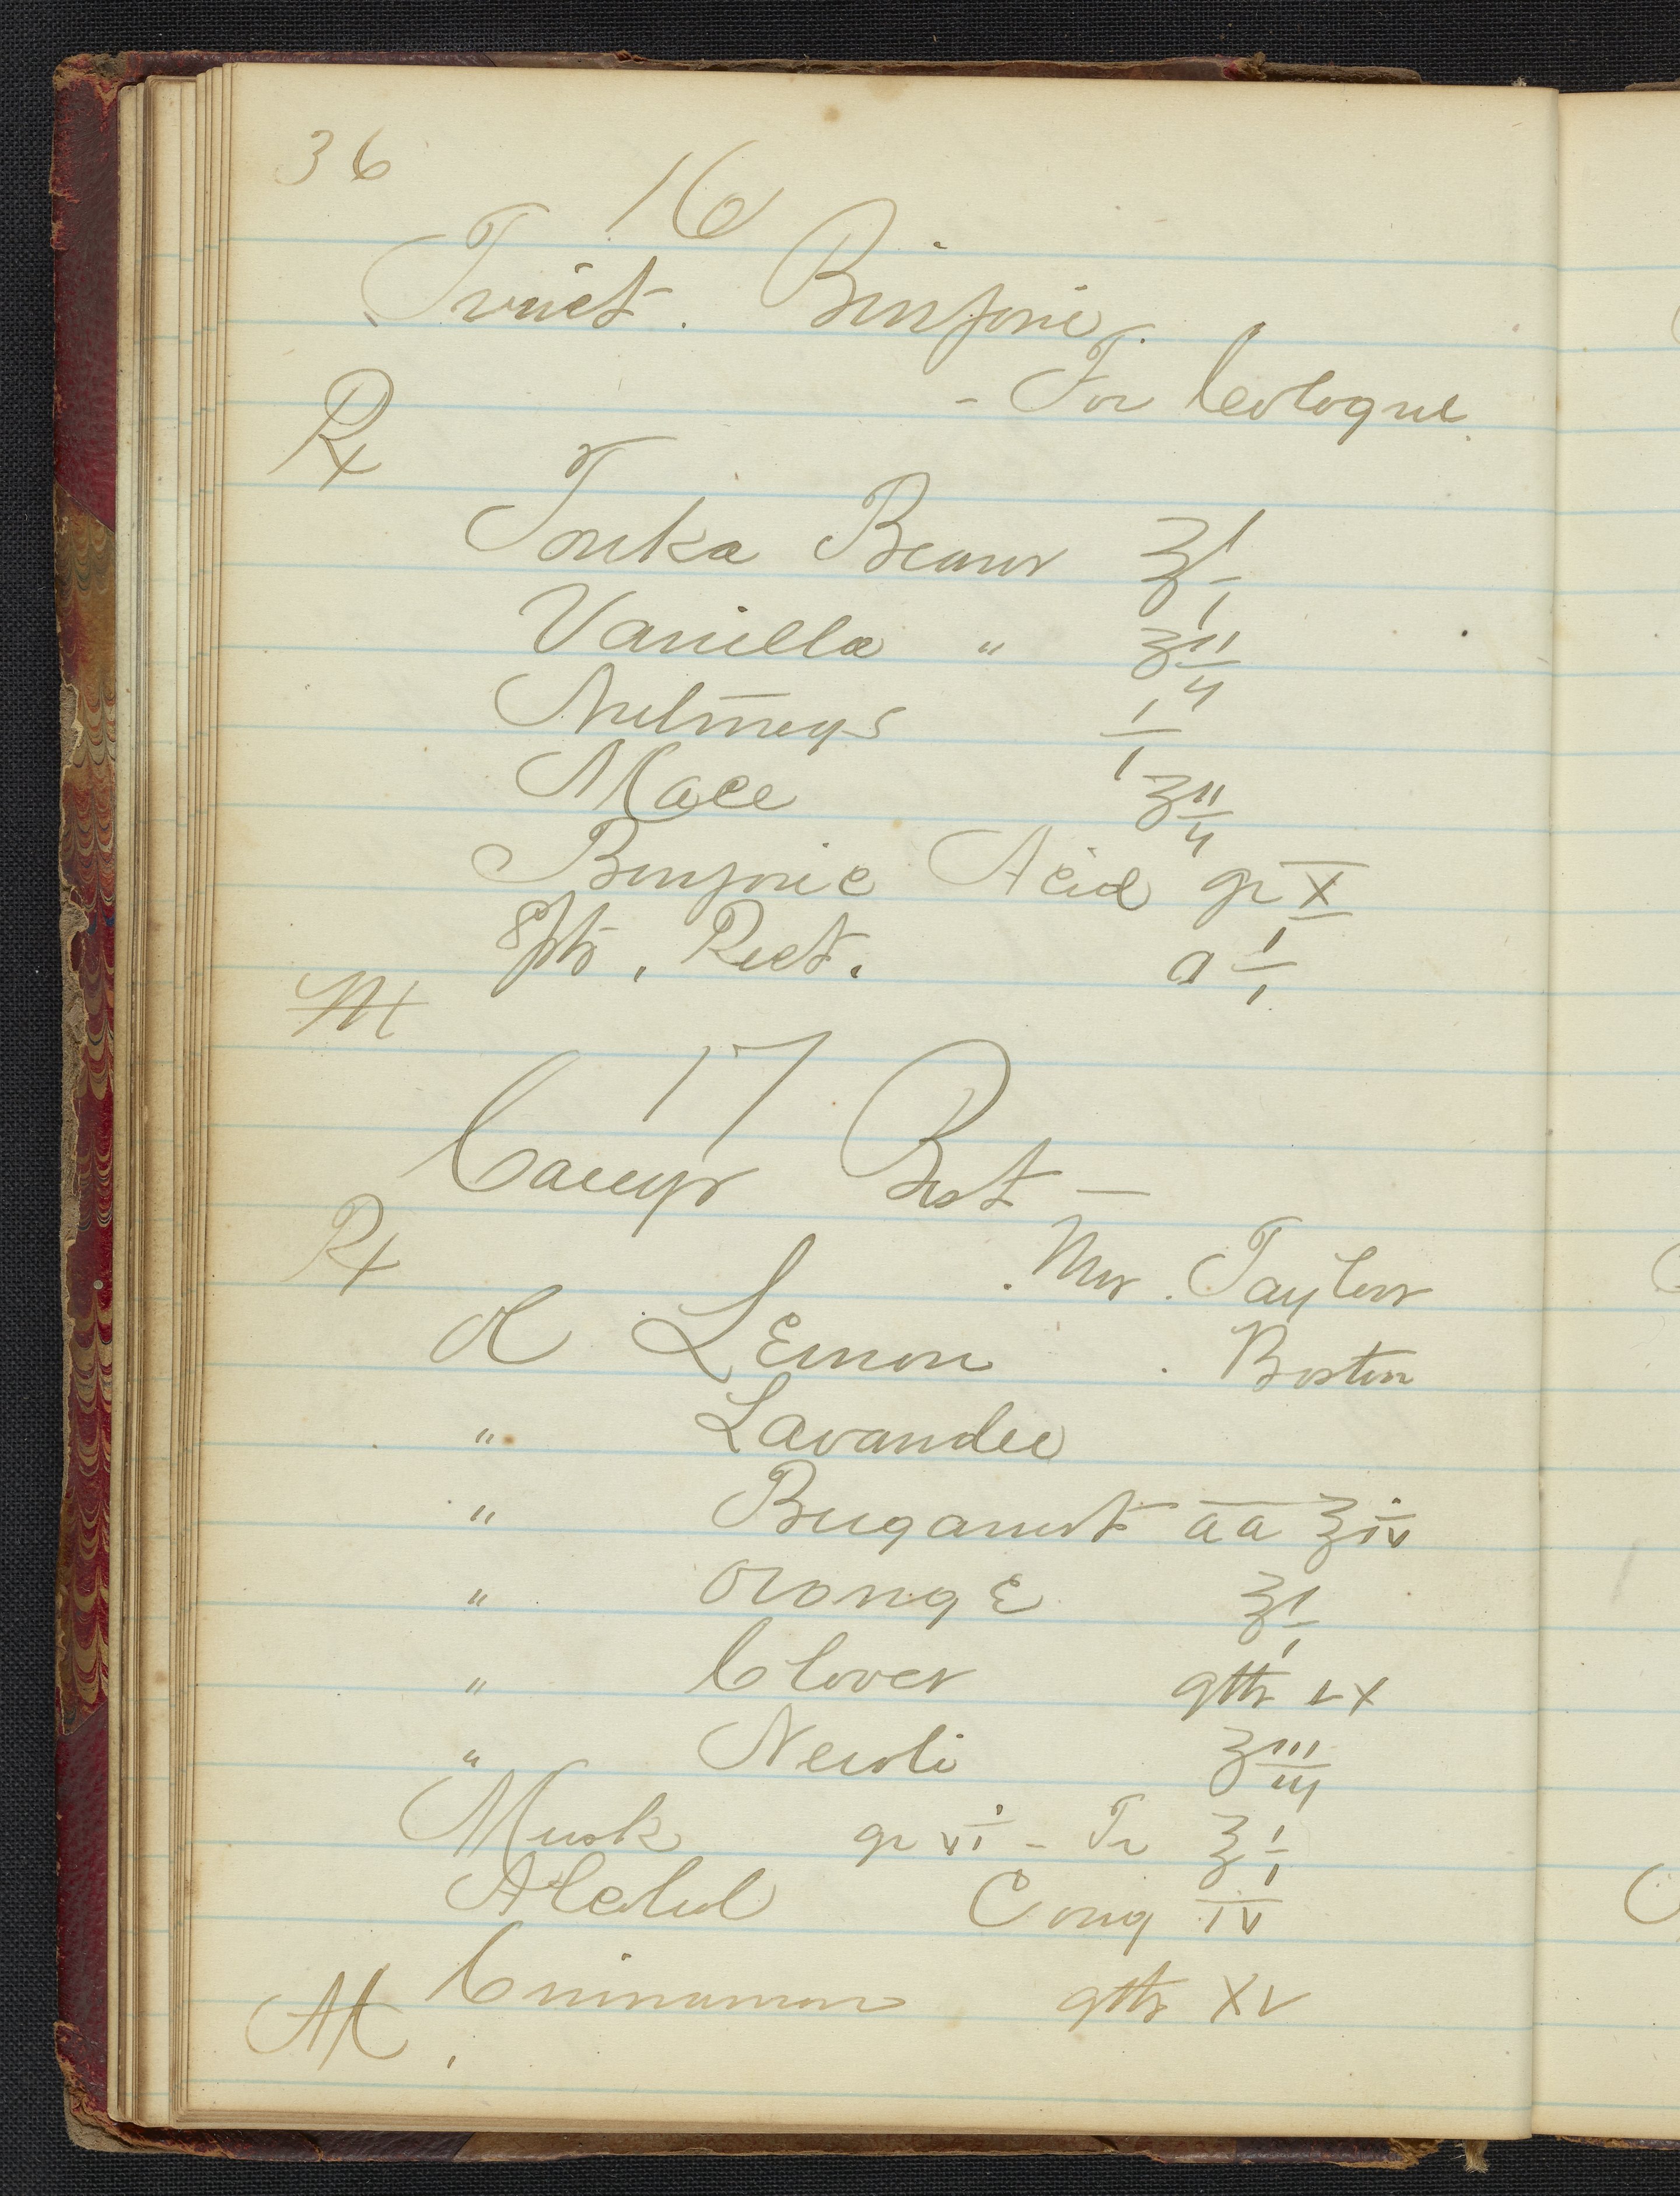 36
16
Tinct. Benzoic
- For Cologne
Rx
Tonka Beans ℥ i
Vanilla " ʒ ii
Nutmegs i
Mace ʒ ii
Benzoic Acid gr x
Spts. Rect. O i
M
17
Best —
Rx
Mrs. Taylor
Ol Lemon Boston
" Lavandee
" Bergamot aa ℥ iv
" OrangE ℥ i
" Cloves gtts LX
" Neroli ʒ iii
Musk gr vi - Tr ℥ i
Alcohol Cong IV
Cinnamon gtts XV
M.